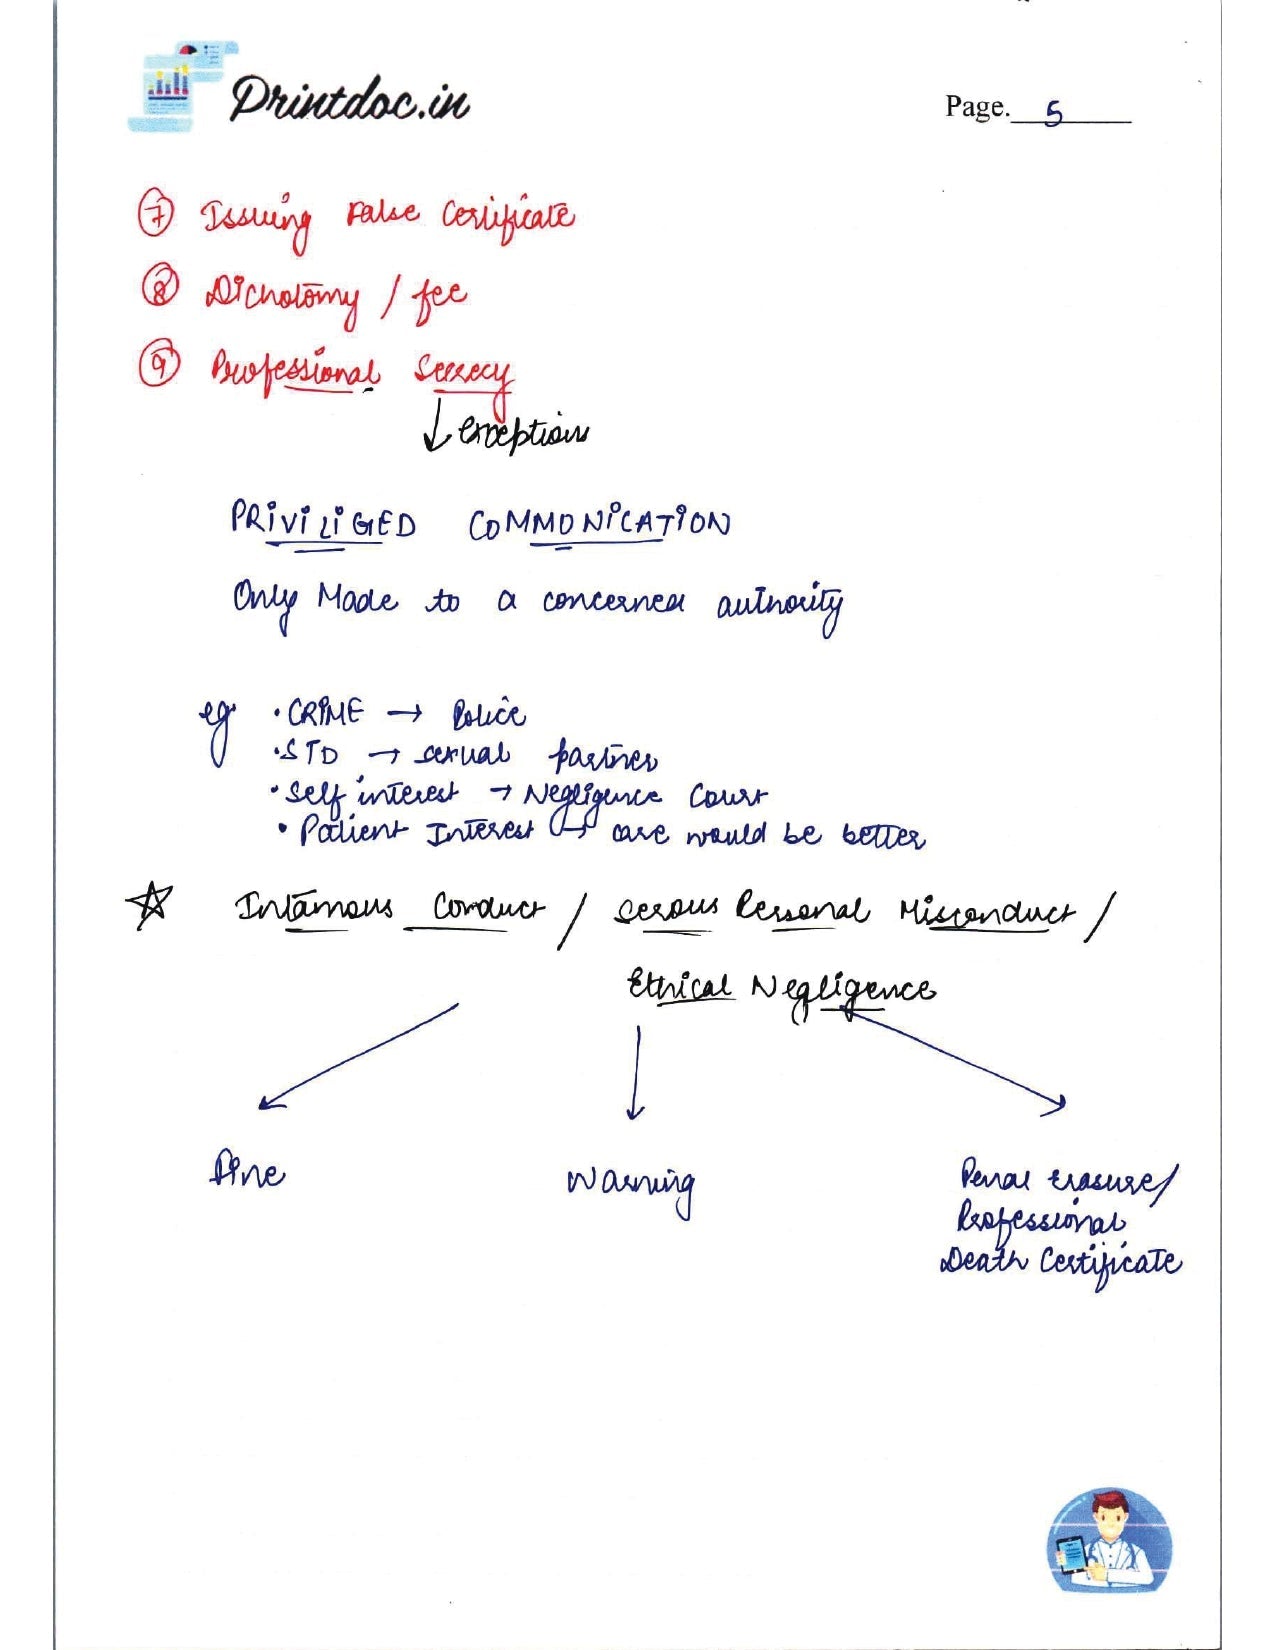 Printdoc.in
Page. 5
⑦ Issuing False Certificate
⑧ Dichotomy / fee
⑨ Professional Secrecy
↓ exceptions
PRIVILIGED COMMUNICATION
Only Made to a concerned authority
eg · CRIME → Police
· STD → sexual partner
· Self interest → Negligence Court
· Patient Interest → care would be better
☆ Infamous Conduct / Serous Personal Misconduct /
Ethical Negligence
Fine
Warning
Penal Erasure/
Professional
Death Certificate